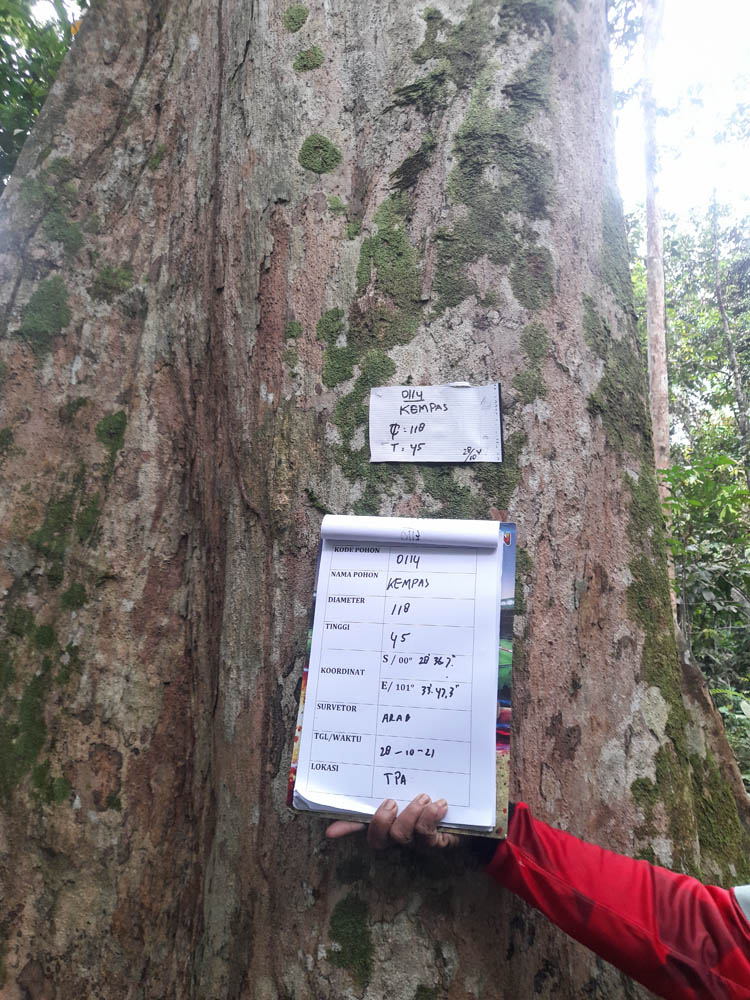 0114
KEMPAS
₵ : 118
T : 45
28/10
KODE POHON 0114
NAMA POHON KEMPAS
DIAMETER 118
TINGGI 45
KOORDINAT S / 00° 28' 36.7"
E / 101° 33' 47,3"
SURVETOR ARAB
TGL/WAKTU 28-10-21
LOKASI TPA